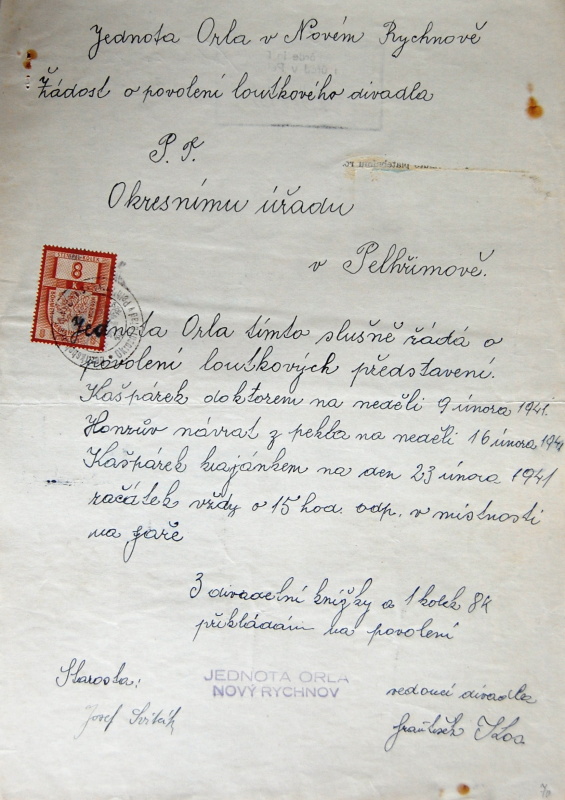 Jednota Orla v Novém Rychnově
Žádost o povolení loutkového divadla
P. T.
Okresnímu úřadu
v Pelhřimově.
8
K
Jednota Orla tímto slušně žádá o
povolení loutkových představení.
Kašpárek doktorem na neděli 9 února 1941.
Honzův návrat z pekla na neděli 16 února 1941
Kašpárek krajánkem na den 23 února 1941
začátek vždy o 15 hod. odp. v místnosti
na faře
3 divadelní knížky a 1 kolek 8k
přikládám na povolení
Starosta:
JEDNOTA ORLA
NOVÝ RYCHNOV
vedoucí divadla
Josef
František